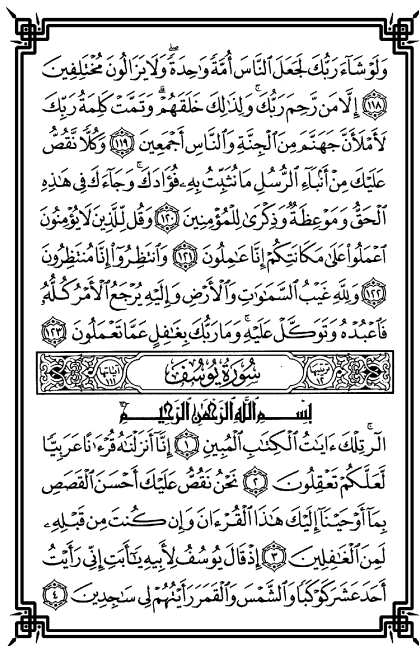 وَلَوْ شَآءَ رَبُّكَ لَجَعَلَ ٱلنَّاسَ أُمَّةً وَٰحِدَةً ۖ وَلَا يَزَالُونَ مُخْتَلِفِينَ
﴿١١٨﴾ إِلَّا مَن رَّحِمَ رَبُّكَ ۚ وَلِذَٰلِكَ خَلَقَهُمْ ۗ وَتَمَّتْ كَلِمَةُ رَبِّكَ
لَأَمْلَأَنَّ جَهَنَّمَ مِنَ ٱلْجِنَّةِ وَٱلنَّاسِ أَجْمَعِينَ ﴿١١٩﴾ وَكُلًّا نَّقُصُّ
عَلَيْكَ مِنْ أَنۢبَآءِ ٱلرُّسُلِ مَا نُثَبِّتُ بِهِۦ فُؤَادَكَ ۚ وَجَآءَكَ فِى هَٰذِهِ
ٱلْحَقُّ وَمَوْعِظَةٌ وَذِكْرَىٰ لِلْمُؤْمِنِينَ ﴿١٢٠﴾ وَقُل لِّلَّذِينَ لَا يُؤْمِنُونَ
ٱعْمَلُوا۟ عَلَىٰ مَكَانَتِكُمْ إِنَّا عَٰمِلُونَ ﴿١٢١﴾ وَٱنتَظِرُوٓا۟ إِنَّا مُنتَظِرُونَ
﴿١٢٢﴾ وَلِلَّهِ غَيْبُ ٱلسَّمَٰوَٰتِ وَٱلْأَرْضِ وَإِلَيْهِ يُرْجَعُ ٱلْأَمْرُ كُلُّهُۥ
فَٱعْبُدْهُ وَتَوَكَّلْ عَلَيْهِ ۚ وَمَا رَبُّكَ بِغَٰفِلٍ عَمَّا تَعْمَلُونَ ﴿١٢٣﴾
ترتيبها ١٢ سُورَةُ يُوسُفَ آياتها ١١١
بِسْمِ ٱللَّهِ ٱلرَّحْمَٰنِ ٱلرَّحِيمِ
الٓر ۚ تِلْكَ ءَايَٰتُ ٱلْكِتَٰبِ ٱلْمُبِينِ ﴿١﴾ إِنَّآ أَنزَلْنَٰهُ قُرْءَٰنًا عَرَبِيًّا
لَّعَلَّكُمْ تَعْقِلُونَ ﴿٢﴾ نَحْنُ نَقُصُّ عَلَيْكَ أَحْسَنَ ٱلْقَصَصِ
بِمَآ أَوْحَيْنَآ إِلَيْكَ هَٰذَا ٱلْقُرْءَانَ وَإِن كُنتَ مِن قَبْلِهِۦ
لَمِنَ ٱلْغَٰفِلِينَ ﴿٣﴾ إِذْ قَالَ يُوسُفُ لِأَبِيهِ يَٰٓأَبَتِ إِنِّى رَأَيْتُ
أَحَدَ عَشَرَ كَوْكَبًا وَٱلشَّمْسَ وَٱلْقَمَرَ رَأَيْتُهُمْ لِى سَٰجِدِينَ ﴿٤﴾